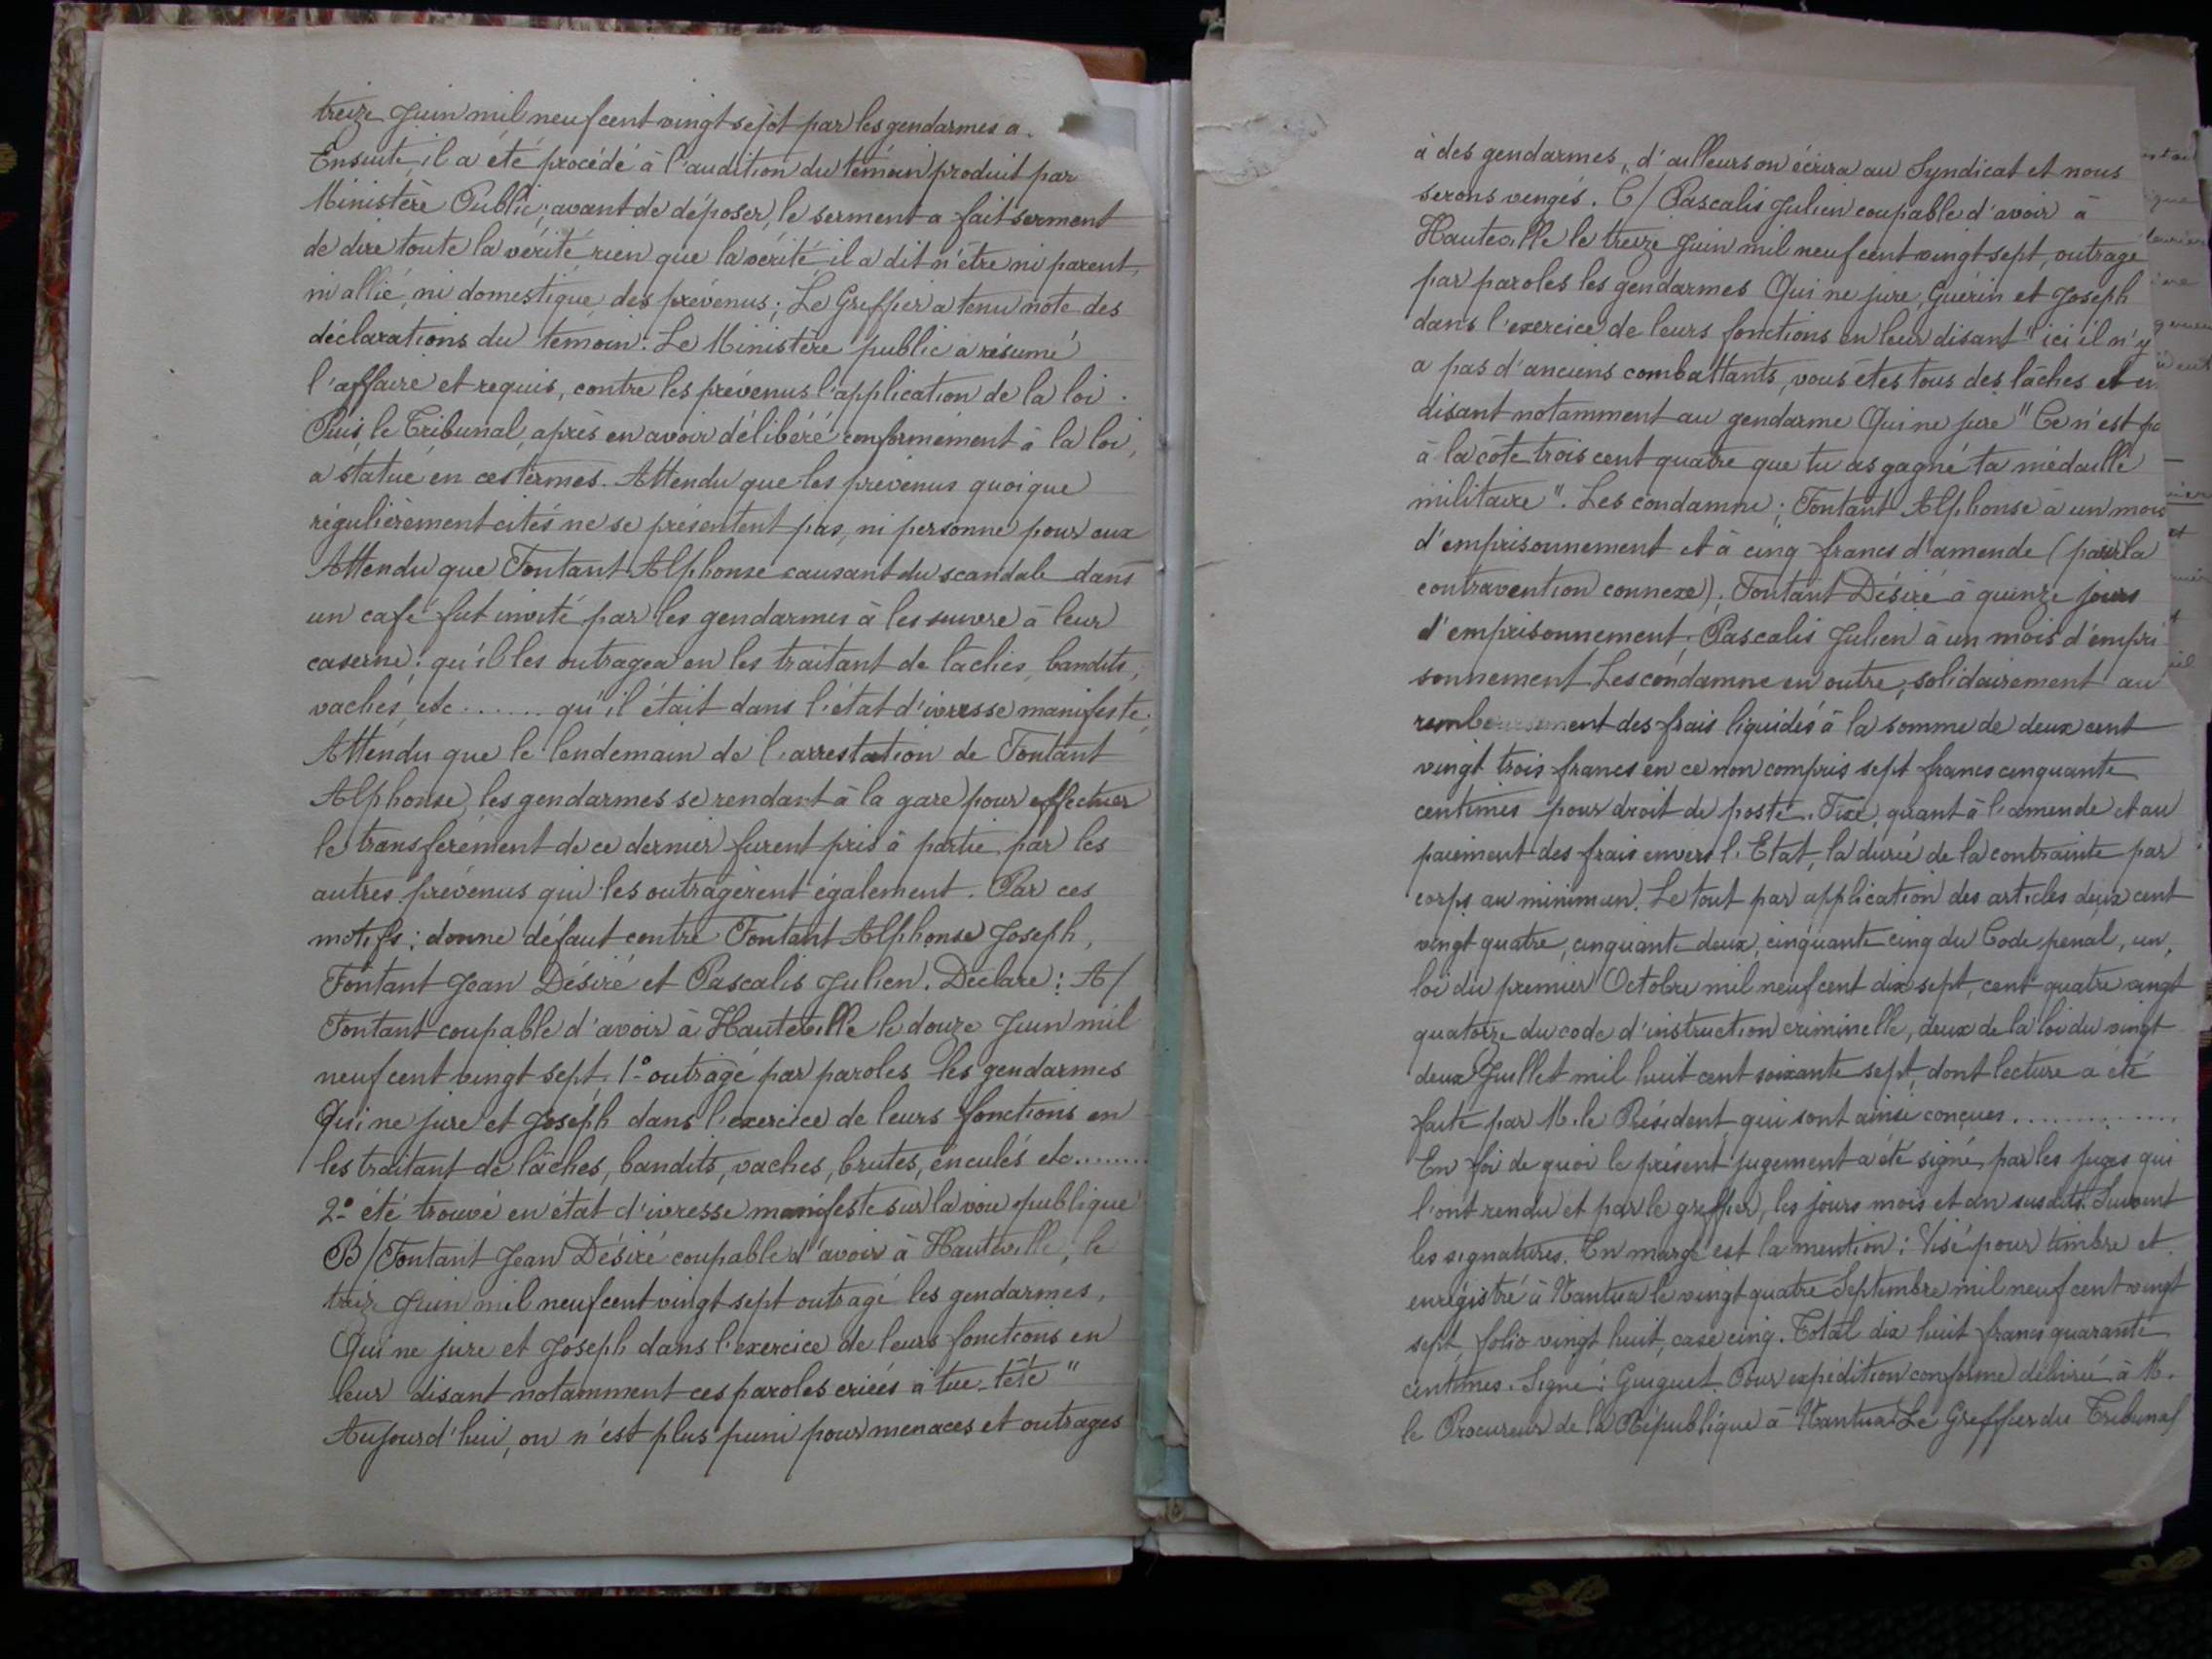 treize Juin mil neuf cent vingt sept par les gendarmes a.
Ensuite, il a été procédé à l'audition du témoin produit par
Ministère Public; avant de déposer, le serment a fait serment
de dire toute la vérité rien que la vérité il a dit n'être ni parent,
ni allié, ni domestique des prévenus; Le Greffier a tenu note des
déclarations du témoin. Le Ministère public a résumé
l'affaire et requis, contre les prévenus l'application de la loi.
Puis le Tribunal, après en avoir délibéré conformément à la loi,
a statué en ces termes. Attendu que les prévenus quoique
régulièrement cités ne se présentent pas, ni personne pour eux
Attendu que Fontant Alphonse causant du scandale dans
un café fut invité par les gendarmes à les suivre à leur
caserne; qu'il les outragea en les traitant de lâches, bandits,
vaches, etc...... qu'il était dans l'état d'ivresse manifeste;
Attendu que le lendemain de l'arrestation de Fontant
Alphonse, les gendarmes se rendant à la gare pour effectuer
le transfèrement de ce dernier furent pris à partie par les
autres prévenus qui les outragèrent également. Par ces
motifs: donne défaut contre Fontant Alphonse Joseph,
Fontant Jean Désiré et Pascalis Julien. Déclare: A/
Fontant coupable d'avoir à Hauteville le douze Juin mil
neuf cent vingt sept, 1° outragé par paroles les gendarmes
Qui ne jure et Joseph dans l'exercice de leurs fonctions en
les traitant de lâches, bandits, vaches, brutes, enculés etc........
2° été trouvé en état d'ivresse manifeste sur la voie publique
B/ Fontant Jean Désiré coupable d'avoir à Hauteville, le
treize Juin mil neuf cent vingt sept outragé les gendarmes,
Qui ne jure et Joseph dans l'exercice de leurs fonctions en
leur disant notamment ces paroles criées à tue-tête "
Aujourd'hui, on n'est plus puni pour menaces et outrages
à des gendarmes, d'ailleurs on écrira au Syndicat et nous
serons vengés. C/ Pascalis Julien coupable d'avoir à
Hauteville le treize Juin mil neuf cent vingt sept, outragé
par paroles les gendarmes Qui ne jure, Guérin et Joseph
dans l'exercice de leurs fonctions en leur disant "ici il n'y
a pas d'anciens combattants, vous êtes tous des lâches et en
disant notamment au gendarme Qui ne jure "Ce n'est pa
à la côte trois cent quatre que tu as gagné ta médaille
militaire". Les condamne; Fontant Alphonse à un mois
d'emprisonnement et à cinq francs d'amende (pour la
contravention connexe); Fontant Désiré à quinze jours
d'emprisonnement; Pascalis Julien à un mois d'empri
sonnement Les condamne en outre, solidairement au
remboursement des frais liquidés à la somme de deux cent
vingt trois francs en ce non compris sept francs cinquante
centimes pour droit de poste. Fixe, quant à l'amende et au
paiement des frais envers l'Etat, la durée de la contrainte par
corps au minimun. Le tout par application des articles deux cent
vingt quatre, cinquante deux, cinquante cinq du Code pénal, un,
loi du premier Octobre mil neuf cent dix sept, cent quatre vingt
quatorze du code d'instruction criminelle, deux de la loi du vingt
deux Juillet mil huit cent soixante sept, dont lecture a été
faite par M. le Président, qui sont ainsi conçues..............
En foi de quoi le présent jugement a été signé par les juges qui
l'ont rendu et par le greffier, les jours mois et an susdits. Suivent
les signatures. En marge est la mention: Visé pour timbre et
enregistré à Nantua le vingt quatre Septembre mil neuf cent vingt
sept, folio vingt huit, case cinq. Total dix huit francs quarante
centimes. Signé: Guiguet. Pour expédition conforme délivrée à M.
le Procureur de la République à Nantua Le Greffier du Tribunal